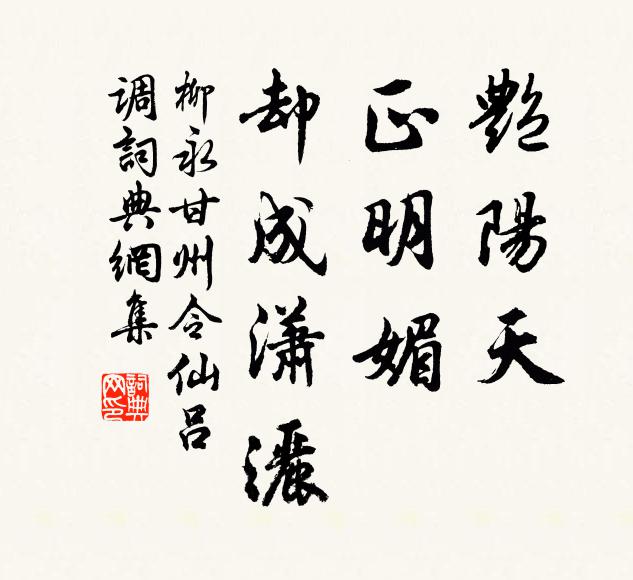 艷陽天
正明媚
却成瀟灑
柳永甘州令仙呂
調詞典網集
詞典網印